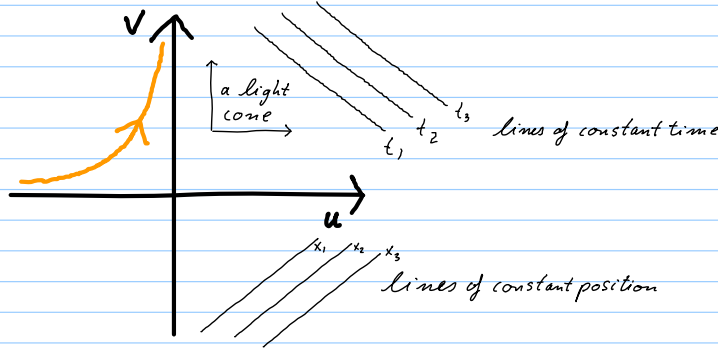 V
a light
cone
t₃
t₂
t₁
lines of constant time
u
x₁ x₂ x₃
lines of constant position